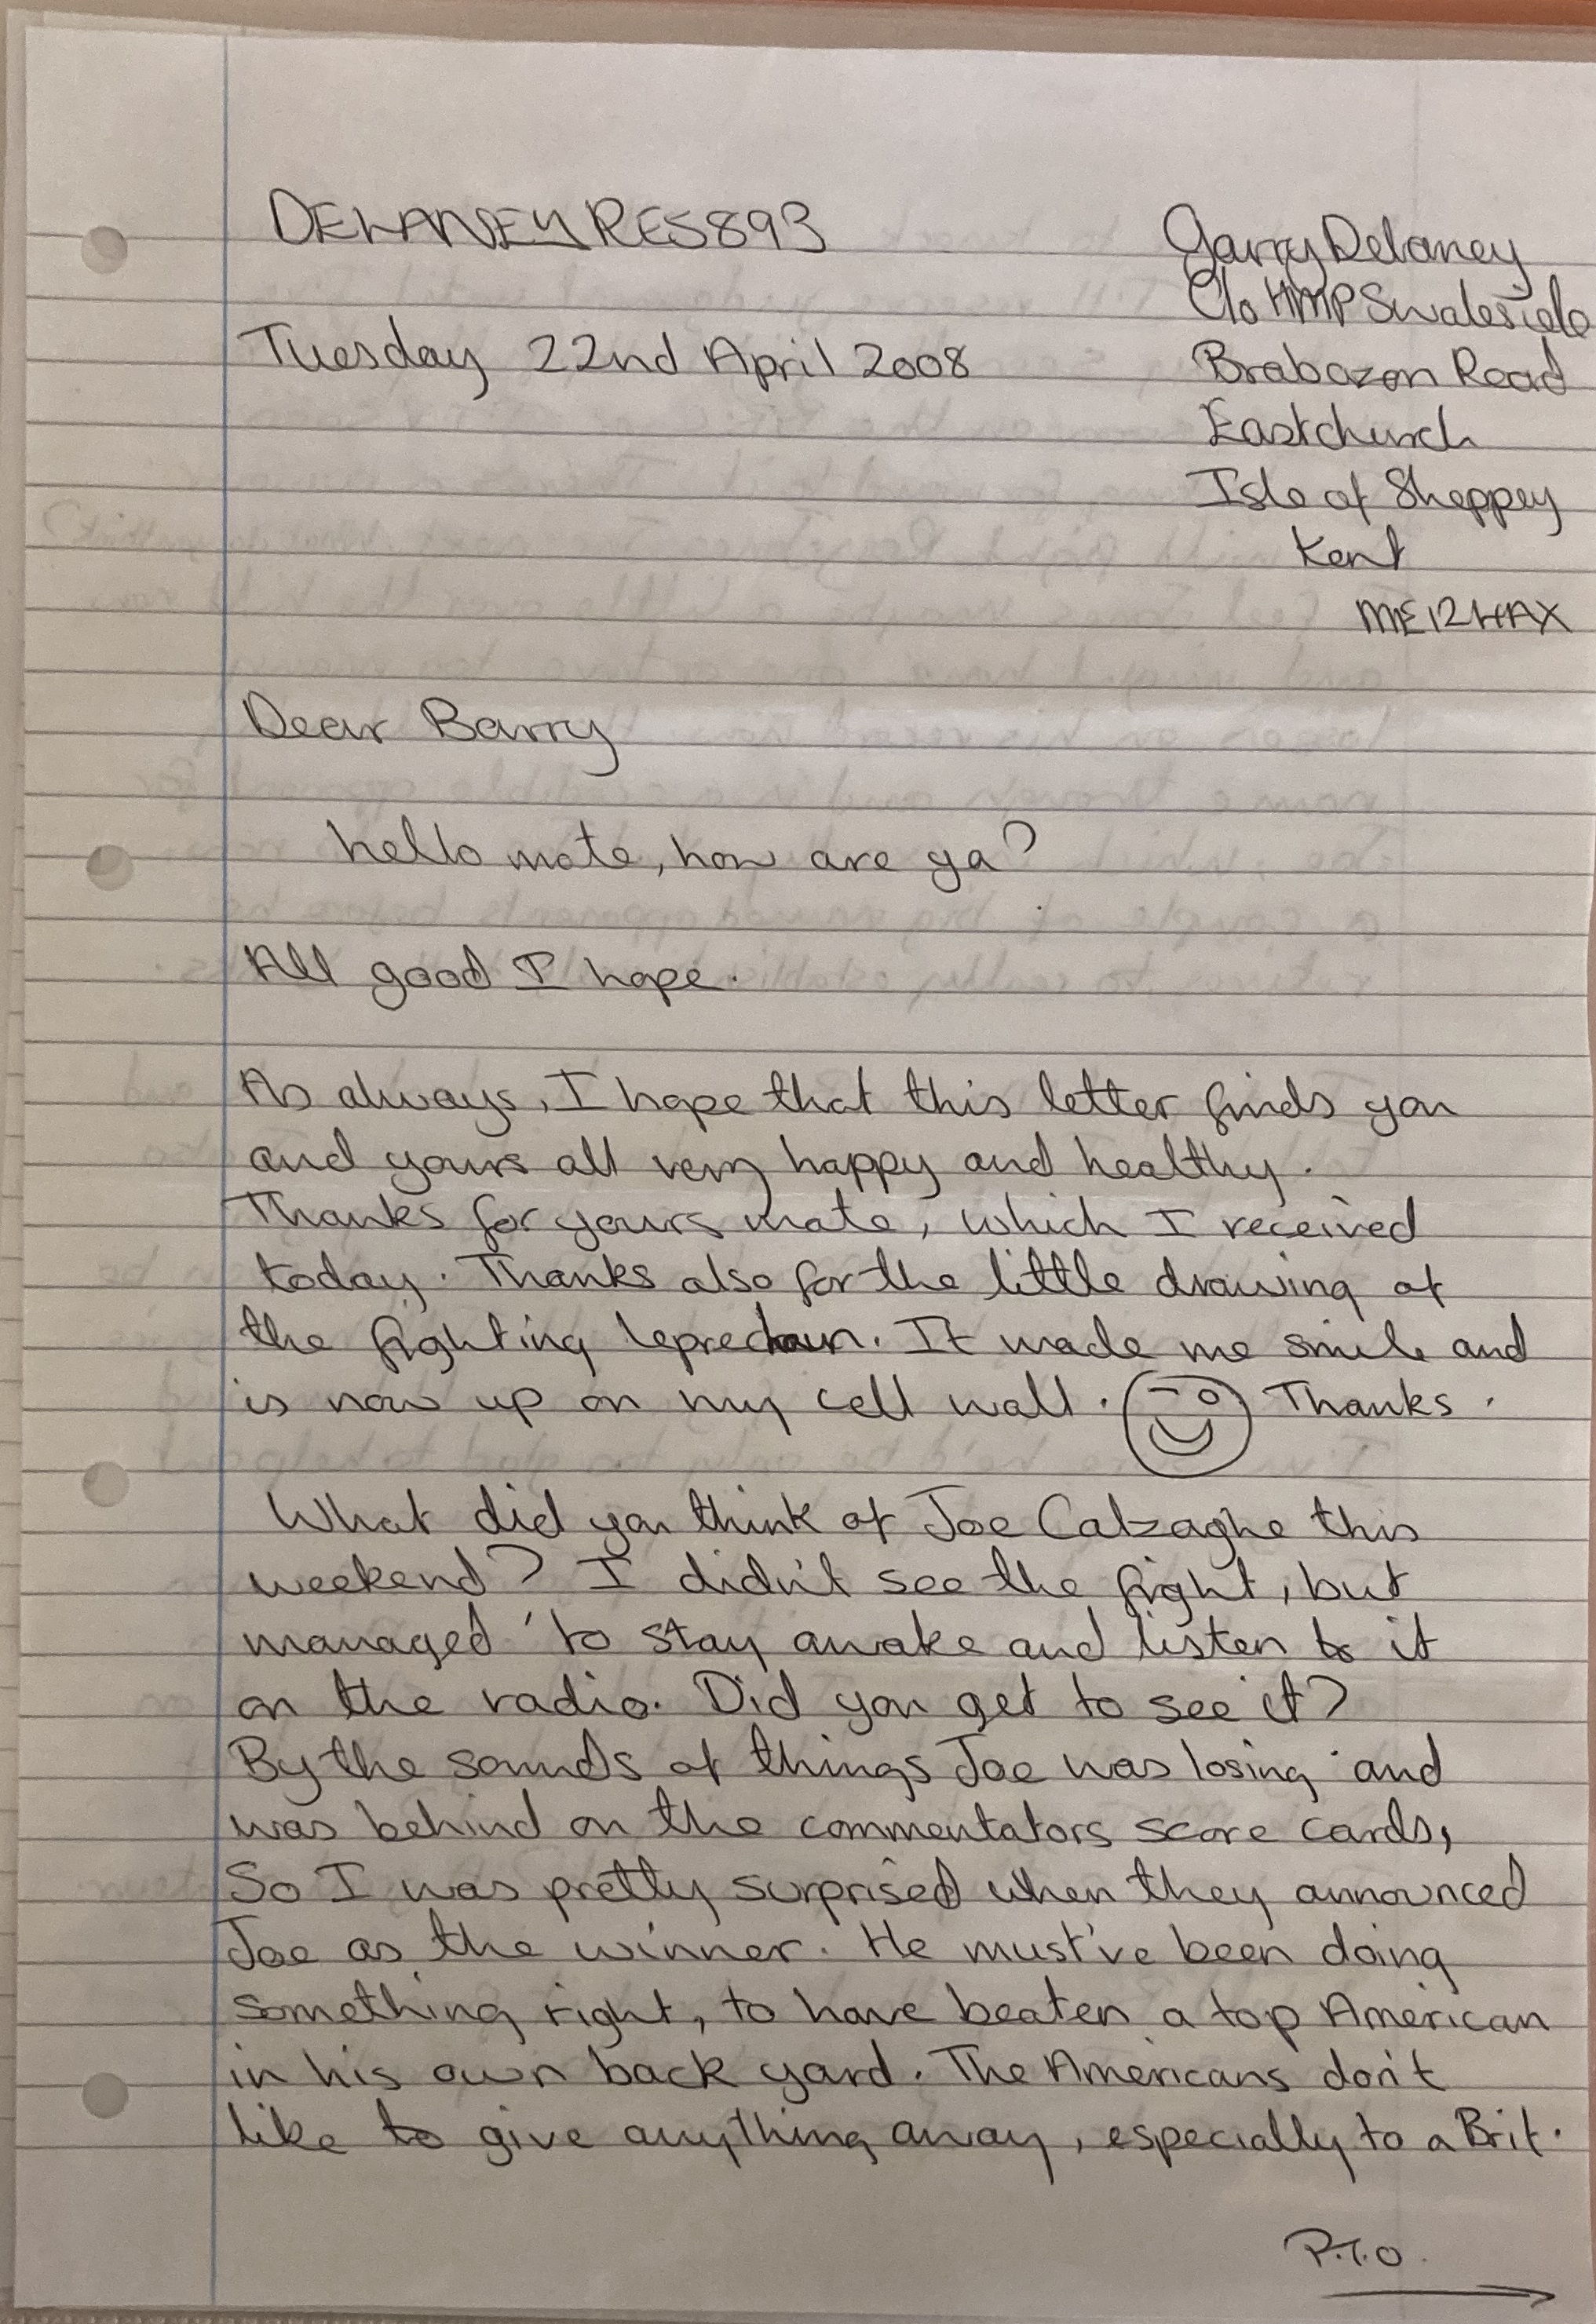 DELANEY RES893
Garry Delaney
C/o HMP Swaleside
Tuesday 22nd April 2008
Brabazon Road
Eastchurch
Isle of Sheppey
Kent
ME12 4AX
Dear Barry
hello mate, how are ya?
All good I hope.
As always, I hope that this letter finds you
and yours all very happy and healthy.
Thanks for yours mate, which I received
today. Thanks also for the little drawing of
the fighting leprechaun. It made me smile and
is now up on my cell wall. Thanks.
What did you think of Joe Calzaghe this
weekend? I didn't see the fight, but
managed to stay awake and listen to it
on the radio. Did you get to see it?
By the sounds of things Joe was losing and
was behind on the commentators score cards,
So I was pretty surprised when they announced
Joe as the winner. He must've been doing
something right, to have beaten a top American
in his own back yard. The Americans don't
like to give anything away, especially to a Brit.
P.T.O.